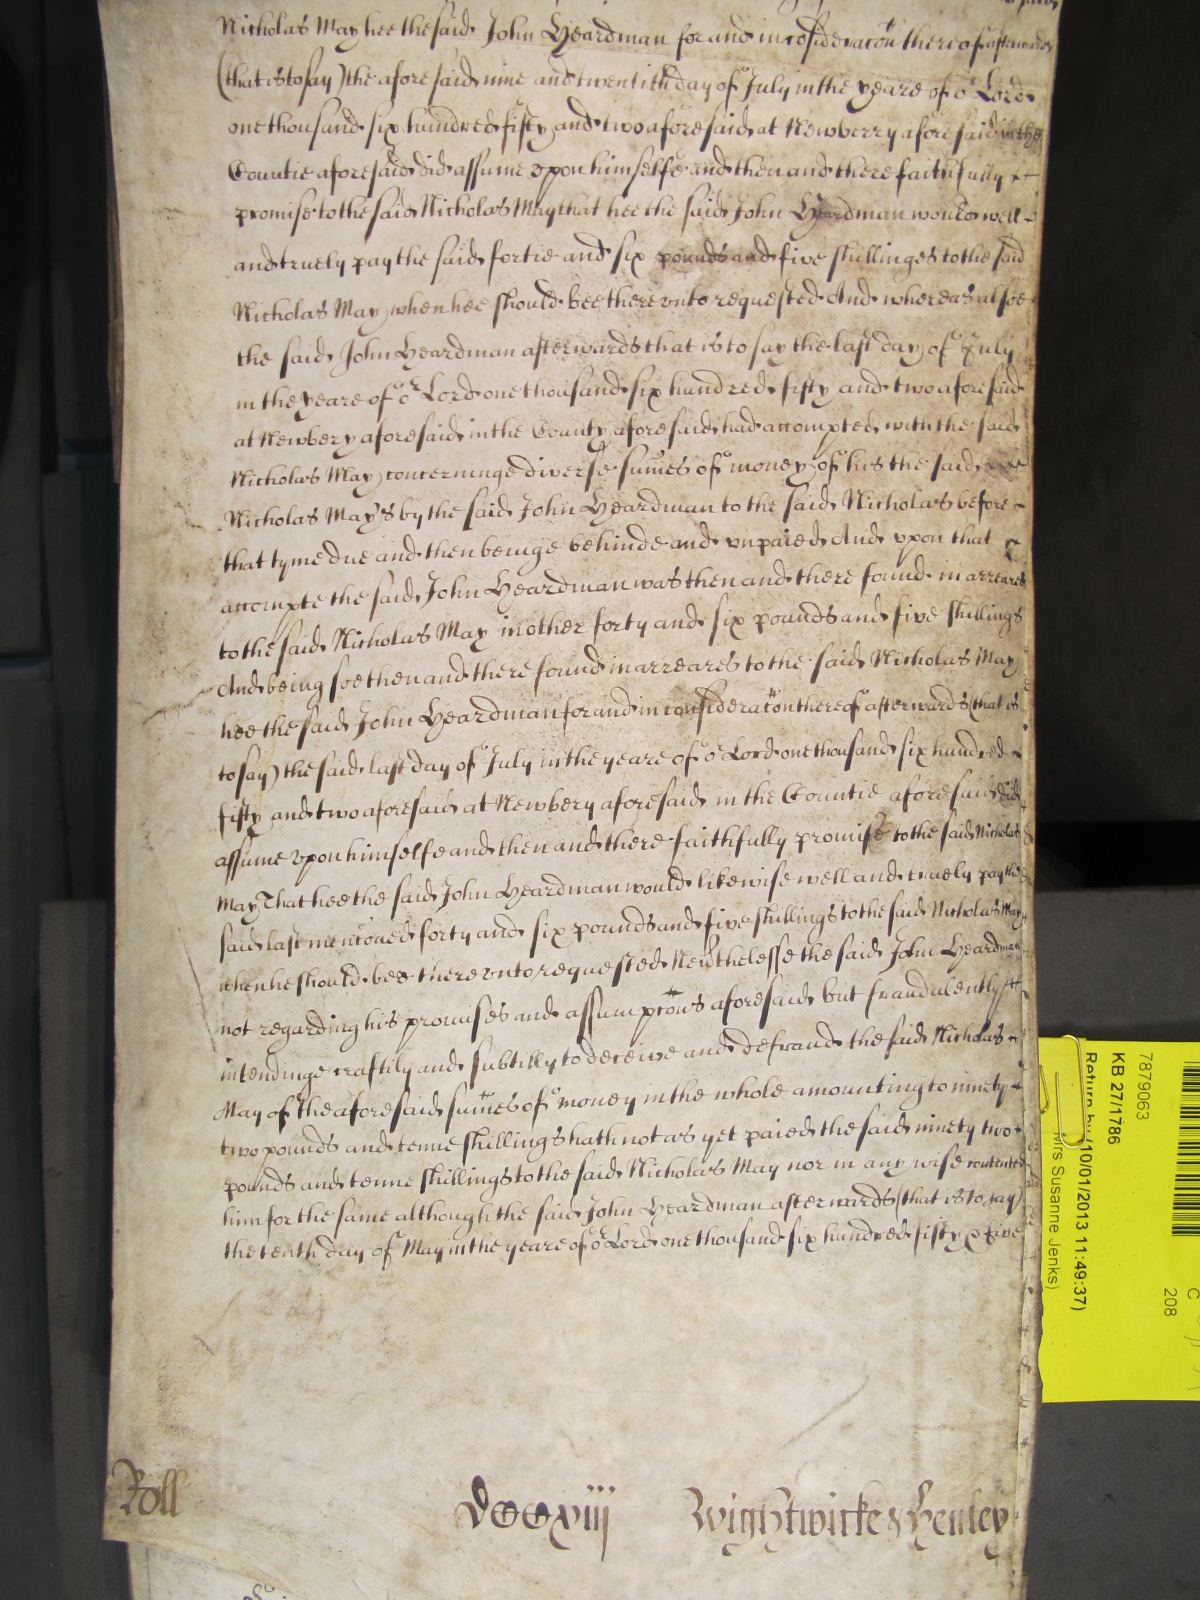 Nicholas May hee the said John Heardman for and in consideracon thereof afterwards
(that is to say) the aforesaid nine and twentith day of July in the yeare of or Lord
one thousand six hundred fifty and two aforesaid at Newberry aforesaid in the
Countie aforesaid did assume upon himselfe and then and there faithfully
promise to the said Nicholas May that hee the said John Heardman would well
and truely pay the said fortie and six pounds and five shillinges to the said
Nicholas May when hee should bee therevnto requested And whereas alsoe
the said John Heardman afterwards that is to say the last day of July
in the yeare of or Lord one thousand six hundred fifty and two aforesaid
at Newbery aforesaid in the County aforesaid had accompted with the said
Nicholas May concerninge diverse sumes of money of his the said
Nicholas May's by the said John Heardman to the said Nicholas before
that tyme due and then beinge behinde and vnpaied And vpon that
accompte the said John Heardman was then and there found in arreares
to the said Nicholas May in other forty and six pounds and five shillings
And being soe then and there found in arreares to the said Nicholas May
hee the said John Heardman for and in consideracon thereof afterwards (that is
to say) the said last day of July in the yeare of or Lord one thousand six hundred
fifty and two aforesaid at Newbery aforesaid in the Countie aforesaid did
assume vpon himselfe and then and there faithfully promise to the said Nicholas
May That hee the said John Heardman would likewise well and truely pay the
said last menconed forty and six pounds and five shillings to the said Nicholas May
when he should bee therevnto requested Neuthelesse the said John Heardman
not regarding his promises and assumpcons aforesaid but fraudulently
intendinge craftily and subtilly to deceive and defraud the said Nicholas
May of the aforesaid sumes of money in the whole amounting to ninety
two pounds and tenne shillings hath not as yet paied the said ninety two
pounds and tenne shillings to the said Nicholas May nor in any wise contented
him for the same although the said John Heardman afterwards (that is to say)
the tenth day of May in the yeare of or Lord one thousand six hundred fifty & five
Roll
Wightwicke & Henley
7879063
KB 27/1786
Return by (10/01/2013 11:49:37)
Mrs Susanne Jenks)
C
208